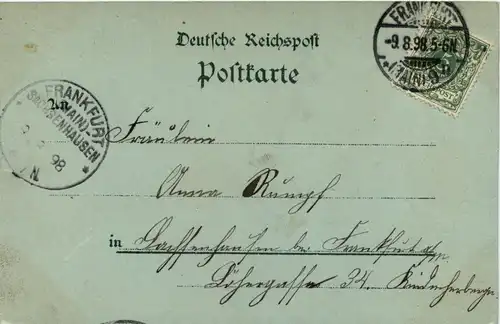 Deutsche Reichspost
Postkarte
FRANKFURT
-9.8.98.5-6N.
*(MAIN)9.*
FRANKFURT
(MAIN)-
SACHSENHAUSEN
98
N
An
Fräulein
Anna Rumpf
in Sachsenhausen bei Frankfurt a/m
Löhergasse 34. Kinderherberge